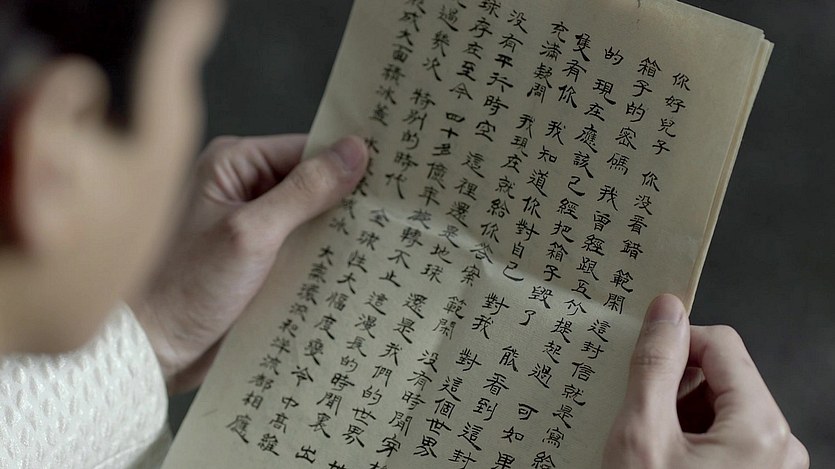 你好兒子 你没看錯 範閑 這封信就是寫給
箱子的密碼 我曾經跟五竹提起過 可如果
的 現在應該已經把箱子毀了 能看到這封
隻有你 我知道你對自己 對我 對這個世界
充滿疑問 我現在就給你答案 範閑 没有時間穿
没有平行時空 這裡還是地球 還是我們的世界
球存在至今 四十多億年旋轉不止 這漫長的時間裏 出
過幾次 特别的時代 全球性大幅度變冷 中高
成大面積冰蓋 大氣環流和洋流都相應